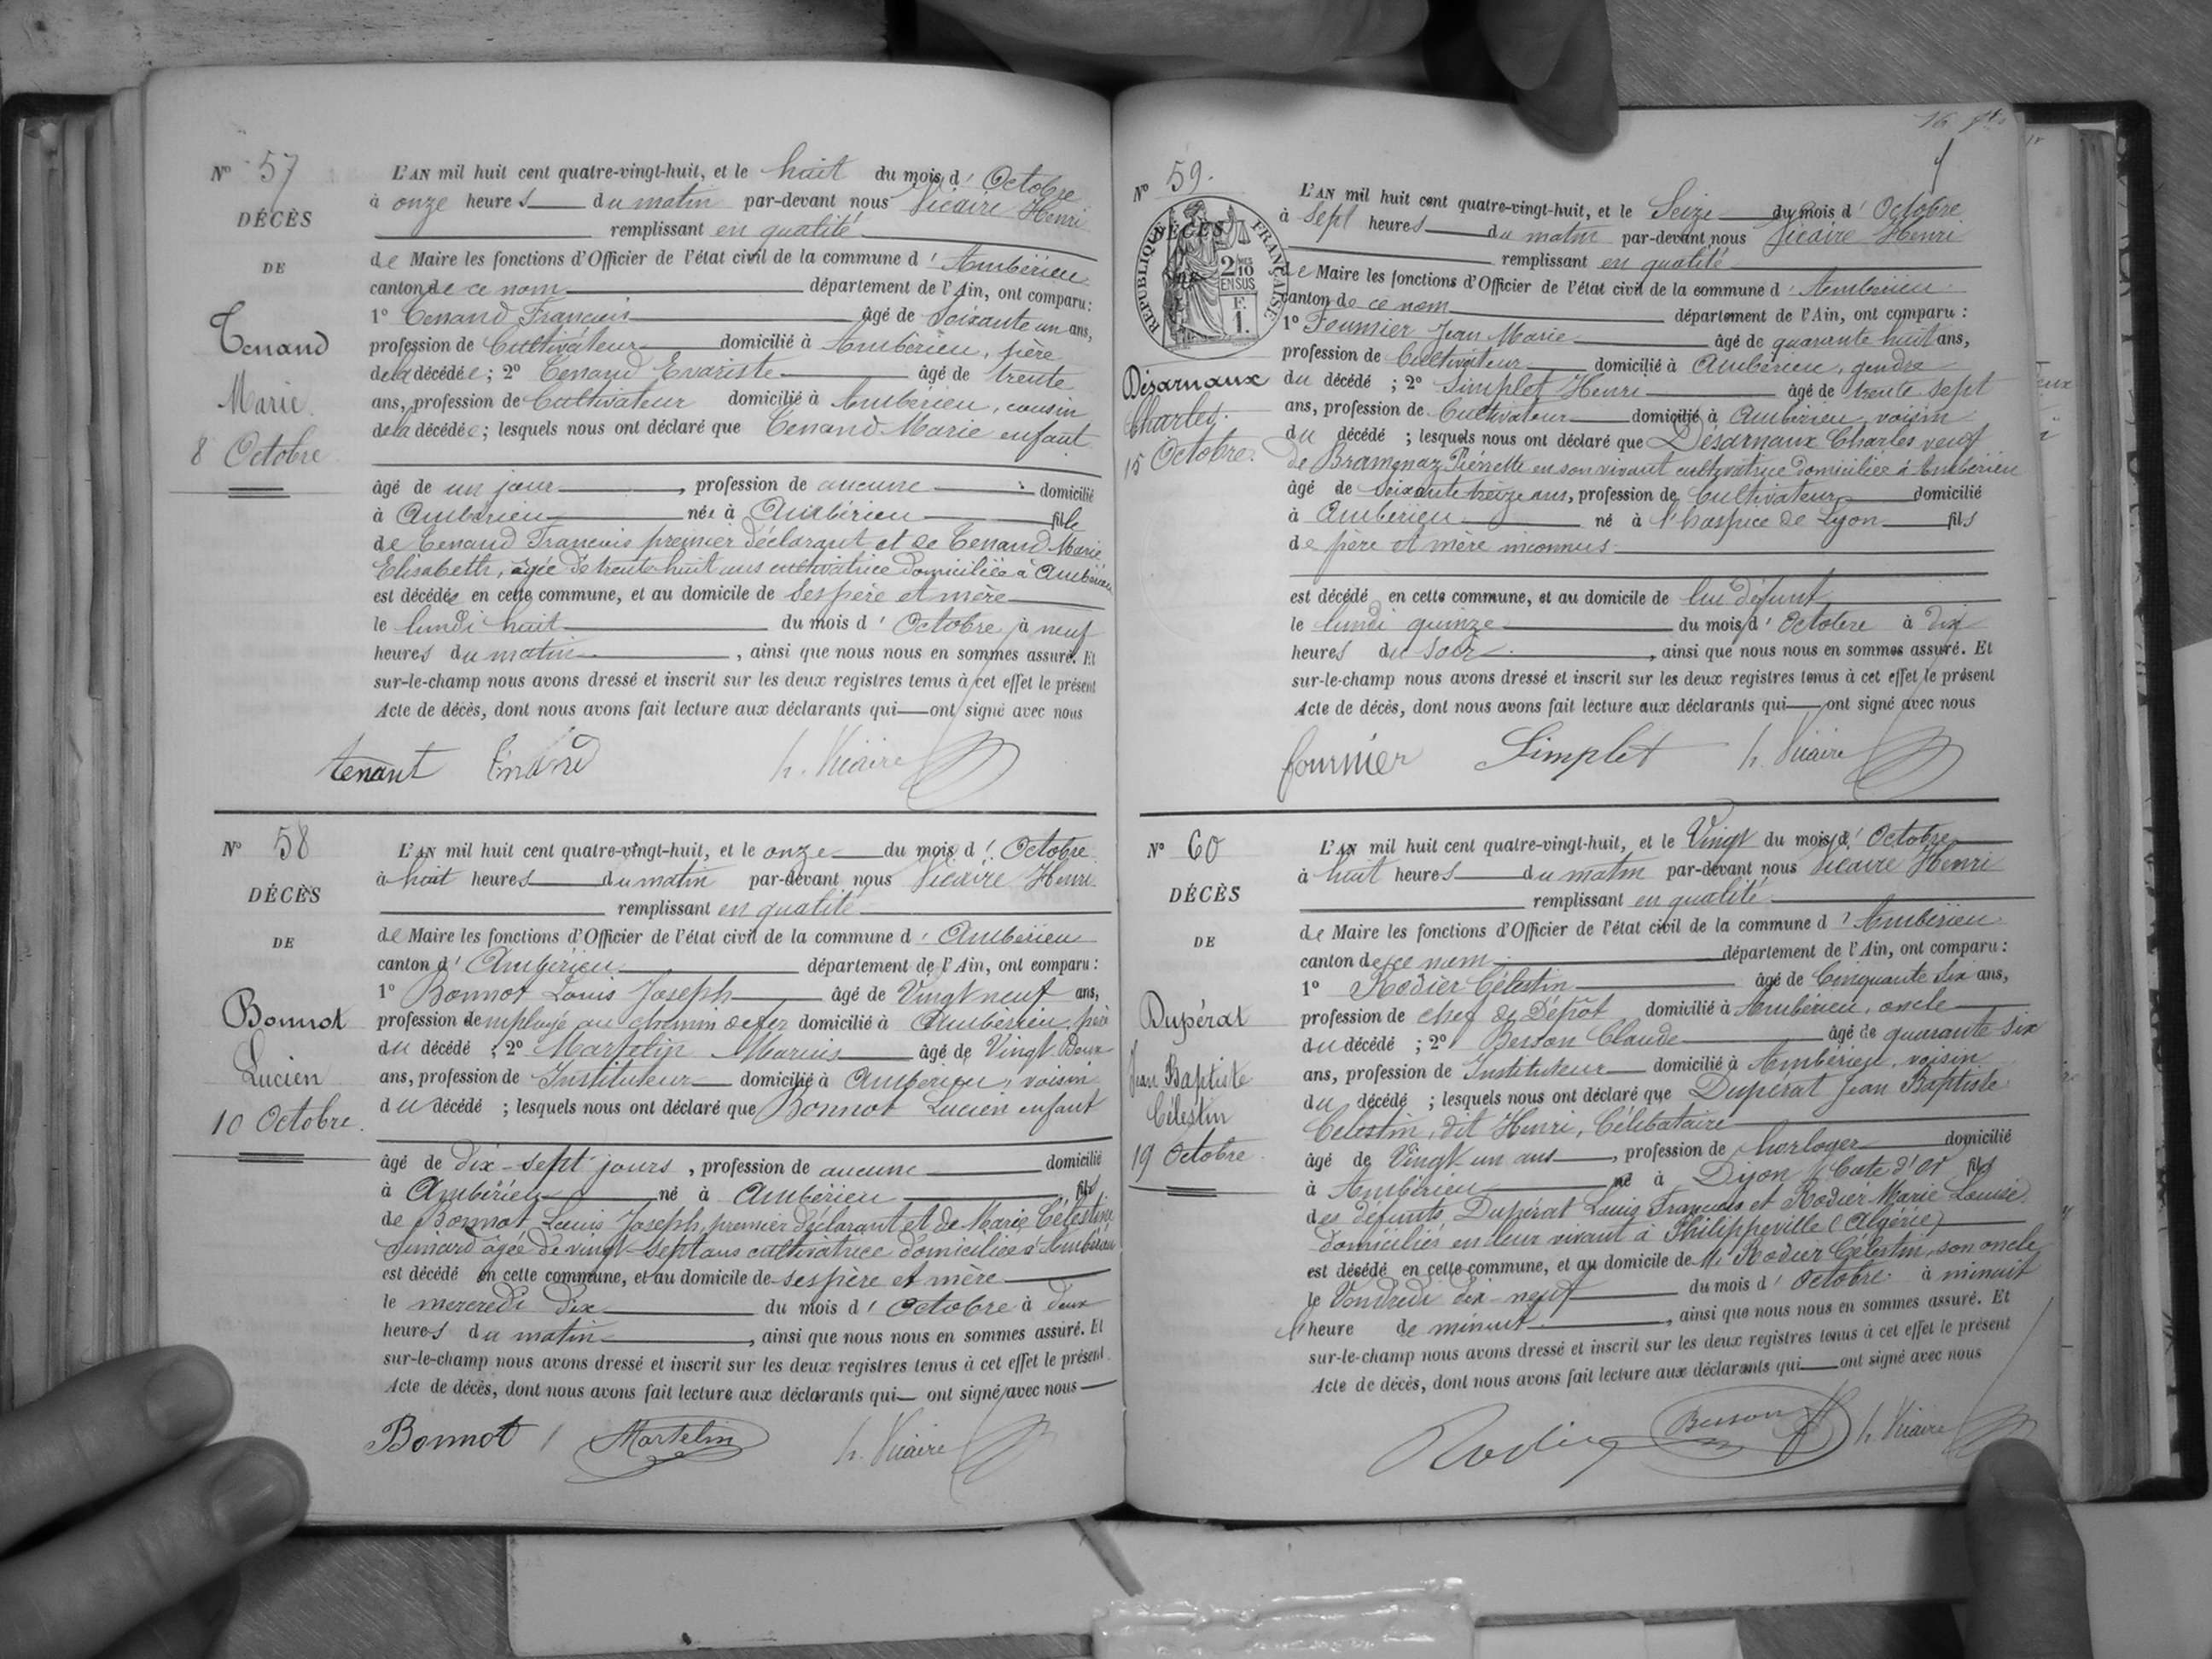 N° 57
DÉCÈS
DE
Tenand
Marie
8 Octobre
L'AN mil huit cent quatre-vingt-huit, et le huit du mois d' Octobre
à onze heures du matin par-devant nous Vicaire Henri
remplissant en qualité
de Maire les fonctions d'Officier de l'état civil de la commune d' Ambérieu
canton de ce nom département de l'Ain, ont comparu :
1° Tenand François âgé de Soixante un ans,
profession de Cultivateur domicilié à Ambérieu, père
de la décédée ; 2° Tenand Evariste âgé de trente
ans, profession de Cultivateur domicilié à Ambérieu, cousin
de la décédée ; lesquels nous ont déclaré que Tenand Marie enfant
âgé de un jour, profession de aucune domicilié
à Ambérieu née à Ambérieu fille
de Tenand François premier déclarant et de Tenand Marie
Elisabeth, agée de trente huit ans cultivatrice domiciliée à Ambérieu
est décédée en cette commune, et au domicile de Ses père et mère
le lundi huit du mois d' Octobre à neuf
heures du matin, ainsi que nous nous en sommes assuré. Et
sur-le-champ nous avons dressé et inscrit sur les deux registres tenus à cet effet le présent
Acte de décès, dont nous avons fait lecture aux déclarants qui ont signé avec nous
tenant h. Vicaire
N° 58
DÉCÈS
DE
Bonnot
Lucien
10 Octobre
L'AN mil huit cent quatre-vingt-huit, et le onze du mois d' Octobre
à huit heures du matin par-devant nous Vicaire Henri
remplissant en qualité
de Maire les fonctions d'Officier de l'état civil de la commune d' Ambérieu
canton d' Ambérieu département de l'Ain, ont comparu :
1° Bonnot Louis Joseph âgé de Vingt neuf ans,
profession d'employé au chemin de fer domicilié à Ambérieu, père
du décédé ; 2° Martelin Marius âgé de Vingt Deux
ans, profession de Instituteur domicilié à Ambérieu, voisin
du décédé ; lesquels nous ont déclaré que Bonnot Lucien enfant
âgé de dix-sept jours, profession de aucune domicilié
à Ambérieu né à Ambérieu fils
de Bonnot Louis Joseph, premier déclarant et de Marie Célestine
agée de vingt-sept ans cultivatrice domiciliée à Ambérieu
est décédé en cette commune, et au domicile de ses père et mère
le mercredi dix du mois d' Octobre à deux
heures du matin, ainsi que nous nous en sommes assuré. Et
sur-le-champ nous avons dressé et inscrit sur les deux registres tenus à cet effet le présent
Acte de décès, dont nous avons fait lecture aux déclarants qui ont signé avec nous
Bonnot Martelin h. Vicaire
16
N° 59.
DÉCÈS
RÉPUBLIQUE FRANÇAISE
2/10 EN SUS
F. 1.
Désarnaux
Charles.
15 Octobre.
L'AN mil huit cent quatre-vingt-huit, et le Seize du mois d' Octobre
à Sept heures du matin par-devant nous Vicaire Henri
remplissant en qualité
de Maire les fonctions d'Officier de l'état civil de la commune d' Ambérieu
canton de ce nom département de l'Ain, ont comparu :
1° Fournier Jean Marie âgé de quarante huit ans,
profession de Cultivateur domicilié à Ambérieu, gendre
du décédé ; 2° Simplet Henri âgé de trente sept
ans, profession de Cultivateur domicilié à Ambérieu, voisin
du décédé ; lesquels nous ont déclaré que Désarnaux Charles veuf
de Pierrette en son vivant cultivatrice domiciliée à Ambérieu
âgé de Soixante treize ans, profession de Cultivateur domicilié
à Ambérieu né à l'hospice de Lyon fils
de père et mère inconnus
est décédé en cette commune, et au domicile de lui défunt
le lundi quinze du mois d' Octobre à dix
heures du Soir, ainsi que nous nous en sommes assuré. Et
sur-le-champ nous avons dressé et inscrit sur les deux registres tenus à cet effet le présent
Acte de décès, dont nous avons fait lecture aux déclarants qui ont signé avec nous
fournier Simplet h. Vicaire
N° 60
DÉCÈS
DE
Dupérat
Jean Baptiste
Célestin
19 Octobre
L'AN mil huit cent quatre-vingt-huit, et le Vingt du mois d' Octobre
à huit heures du matin par-devant nous Vicaire Henri
remplissant en qualité
de Maire les fonctions d'Officier de l'état civil de la commune d' Ambérieu
canton de ce nom département de l'Ain, ont comparu :
1° Rodier Célestin âgé de Cinquante Six ans,
profession de chef de Dépôt domicilié à Ambérieu, oncle
du décédé ; 2° Besson Claude âgé de quarante-six
ans, profession de Instituteur domicilié à Ambérieu, voisin
du décédé ; lesquels nous ont déclaré que Dupérat Jean Baptiste
Célestin, dit Henri, Célibataire
âgé de Vingt un ans, profession de horloger domicilié
à Ambérieu né à Dijon, Cote d'or fils
des défunts Dupérat Louis François et Rodier Marie Louise
domiciliés en leur vivant à Philippeville (Algérie)
est décédé en cette commune, et au domicile de M. Rodier Célestin, son oncle
le Vendredi dix-neuf du mois d' Octobre à minuit
heure de minuit, ainsi que nous nous en sommes assuré. Et
sur-le-champ nous avons dressé et inscrit sur les deux registres tenus à cet effet le présent
Acte de décès, dont nous avons fait lecture aux déclarants qui ont signé avec nous
Rodier Besson h. Vicaire